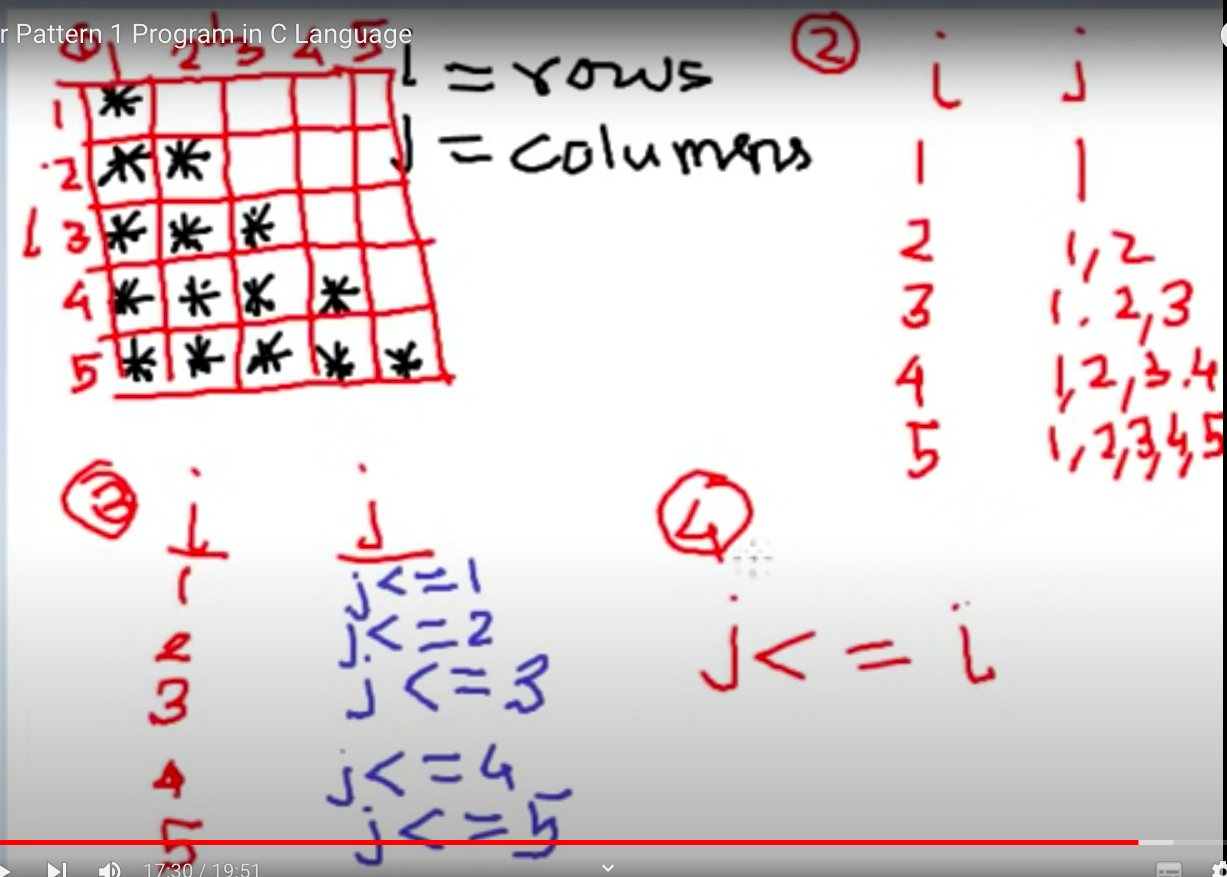 r Pattern 1 Program in C Language
1 2 3 4 5
1 *
2 * *
i 3 * * *
4 * * * *
5 * * * * *
i = rows
j = columens
2 i j
1 1
2 1,2
3 1.2,3
4 1,2,3.4
5 1,2,3,4,5
3 i j
1 j<=1
2 j<=2
3 j<=3
4 j<=4
5 j<=5
4
j<=i
17:30 / 19:51